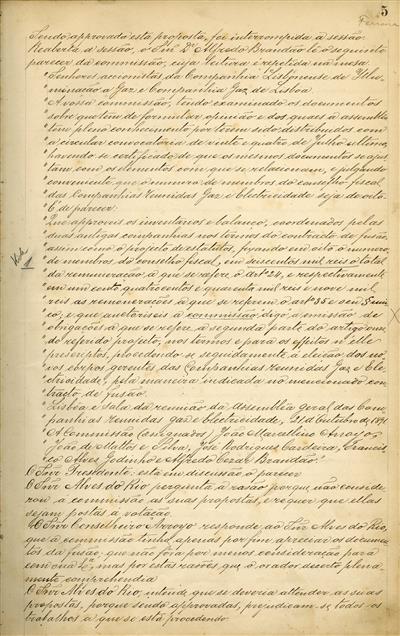 5
Ferreira
Sendo approvada esta proposta, foi interrompida a sessão.
Reaberta a sessão, o Snr. Dr. Alfredo Brandão lê o seguinte
parecer da commissão, cuja leitura é repetida na mesa.
"Senhores accionistas da Companhia Lisbonense de Illu-
"minação a Gaz e Companhia Gaz de Lisboa.
"A vossa commissão, tendo examinado os documentos
"sobre que tem de formular opinião e dos quaes a assemblêa
"tem pleno conhecimento por terem sido destribuidos com
"a circular convocatoria de vinte e quatro de Julho ultimo,
"havendo-se certificado de que os mesmos documentos se ajus
"tam com os elementos com que se relacionam, e julgando
"conveniente que o numero de membros do conselho fiscal
"das Companhias reunidas Gaz e Electricidade seja de oito
"É de parecer:
"Que approveis os inventarios e balanço, coordenados pelas
"duas antigas companhias nos termos do contracto de fusão,
"assim como o projecto de estatutos, fixando em oito o numero
"de membros do conselho fiscal, em duscentos mil reis o total
"da remuneração a que se refere o artº 24, e respectivamente
"em um conto quatrocentos e quarenta mil reis e nove mil
"reis as remunerações a que se referem o artº 35 e seu § uni
"co, e que auctoriseis a commissão digo a emissão de
"obrigações a que se refere a segunda parte do artigo
"do referido projecto, nos termos e para os effeitos n'elle
"prescriptos, procedendo-se seguidamente á eleição dos no-
"vos corpos gerentes das Companhias reunidas Gaz e Ele-
"ctricidade, pela maneira indicada no mencionado con-
"tracto de fusão.
"Lisboa e sala da reunião da Assembléa geral das Com-
"panhias reunidas gaz e electricidade, 21 de Outubro de 1891.
"A Commissão (assignados) João Marcellino Arroyo,
"João de Mattos e Silva, José Rodrigues Cardeira, Francis-
"co Alves Godinho e Alfredo Cezar Brandão."
O Snr. Presidente: está em discussão o parecer
O Snr. Alves do Rio pergunta a rasão porque não conside-
rou a commissão as suas propostas, e requer que ellas
sejam postas á votação.
O Snr. Conselheiro Arroyo responde ao Snr. Alves do Rio,
que a commissão tinha apenas por fim apreciar os documen
tos da fusão, que não fôra por menos consideração para
com mas por estas rasões que o orador decerto plena-
mente comprehendia
O Snr. Alves do Rio, entende que se deveria attender as suas
propostas, porque sendo approvadas, prejudicam-se todos os
trabalhos a que se está procedendo.